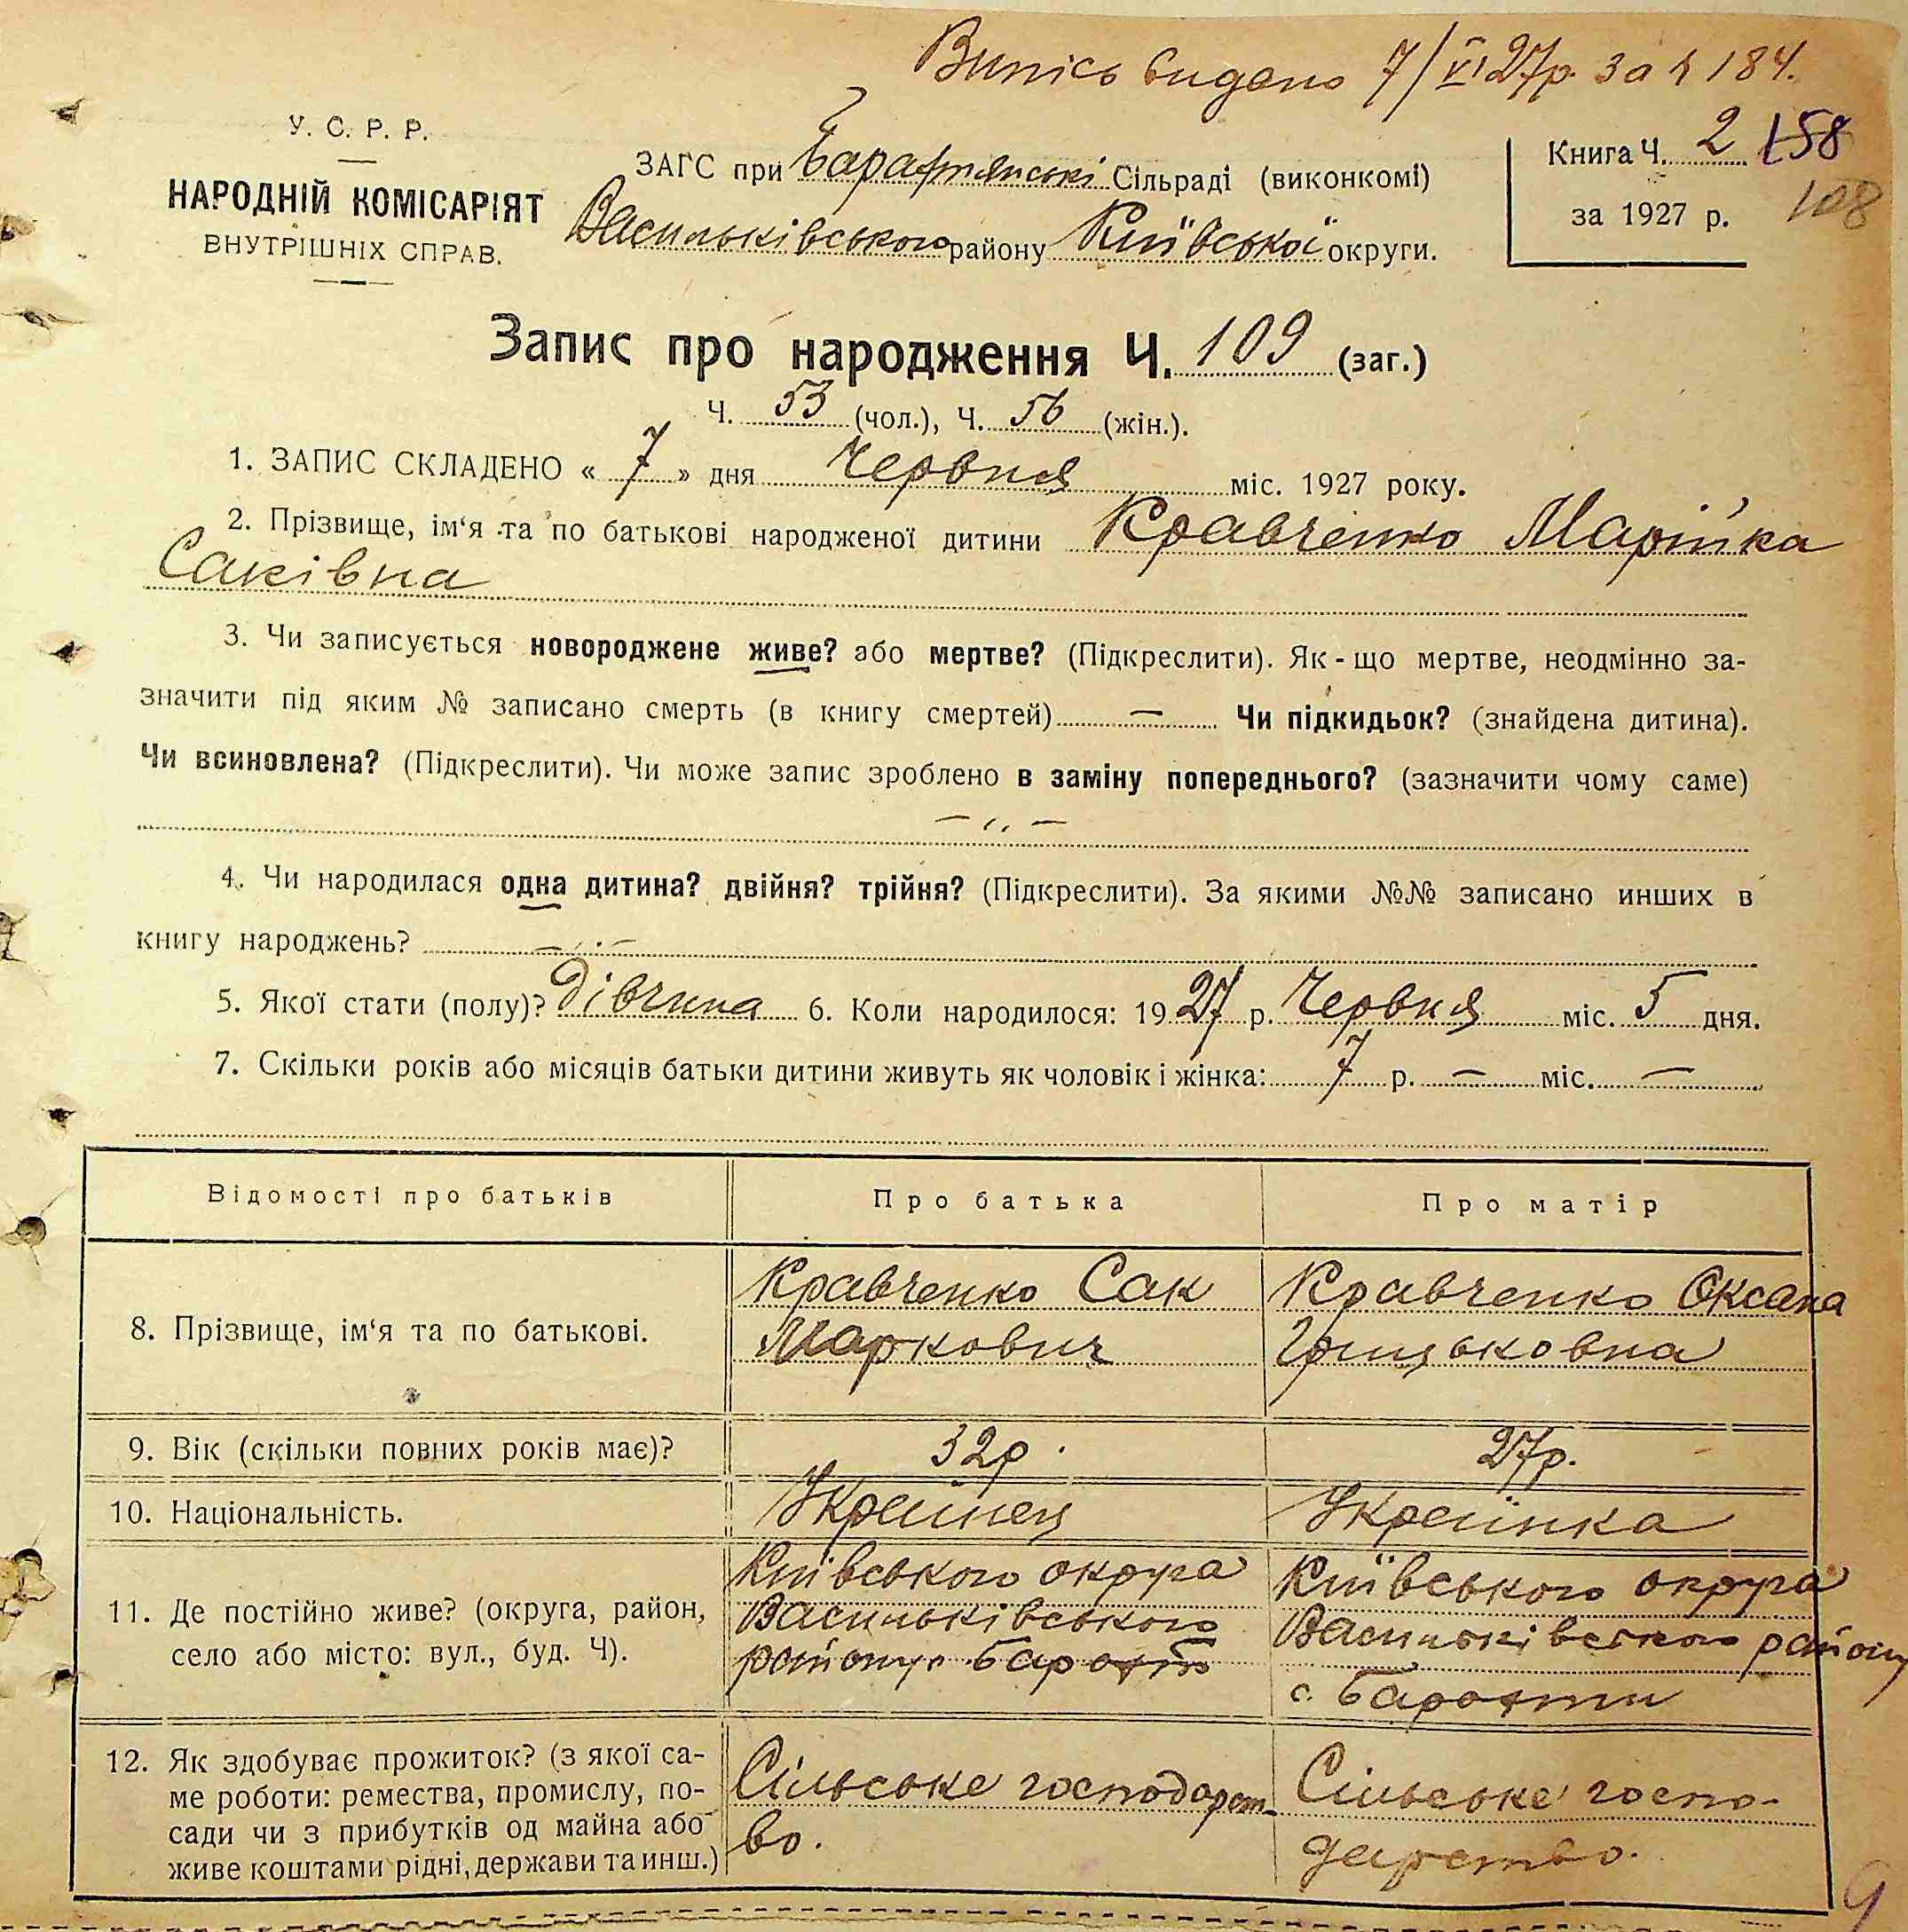 Випись видано 7/VI 27р. за ч 184.
У. С. Р. Р.
НАРОДНІЙ КОМІСАРІЯТ
ВНУТРІШНІХ СПРАВ.
ЗАГС при Барахтянські Сільраді (виконкомі)
Васильківського району Київської округи.
Книга Ч. 2 158
за 1927 р. 108
Запис про народження Ч. 109 (заг.)
Ч. 53 (чол.), Ч. 56 (жін.).
1. ЗАПИС СКЛАДЕНО « 7 » дня Червня міс. 1927 року.
2. Прізвище, ім'я та по батькові народженої дитини Кравченко Марійка
Саківна
3. Чи записується новороджене живе? або мертве? (Підкреслити). Як-що мертве, неодмінно за-
значити під яким № записано смерть (в книгу смертей) — Чи підкидьок? (знайдена дитина).
Чи всиновлена? (Підкреслити). Чи може запис зроблено в заміну попереднього? (зазначити чому саме)
— „ —
4. Чи народилася одна дитина? двійня? трійня? (Підкреслити). За якими №№ записано инших в
книгу народжень? — „ —
5. Якої стати (полу)? Дівчина 6. Коли народилося: 1927 р. Червня міс. 5 дня.
7. Скільки років або місяців батьки дитини живуть як чоловік і жінка: 7 р. — міс. —
Відомості про батьків Про батька Про матір
8. Прізвище, ім'я та по батькові.
Кравченко Сак
Маркович
Кравченко Оксана
Грицьковна
9. Вік (скільки повних років має)? 32р. 27р.
10. Національність. Українец Українка
11. Де постійно живе? (округа, район,
село або місто: вул., буд. Ч).
Київського округа
Васильківського
району с. Барахти
Київського округа
Васильківського району
с. Барахти
12. Як здобуває прожиток? (з якої са-
ме роботи: ремества, промислу, по-
сади чи з прибутків од майна або
живе коштами рідні, держави та инш.)
Сільське господарст-
во.
Сільське госпо-
дарство.
9